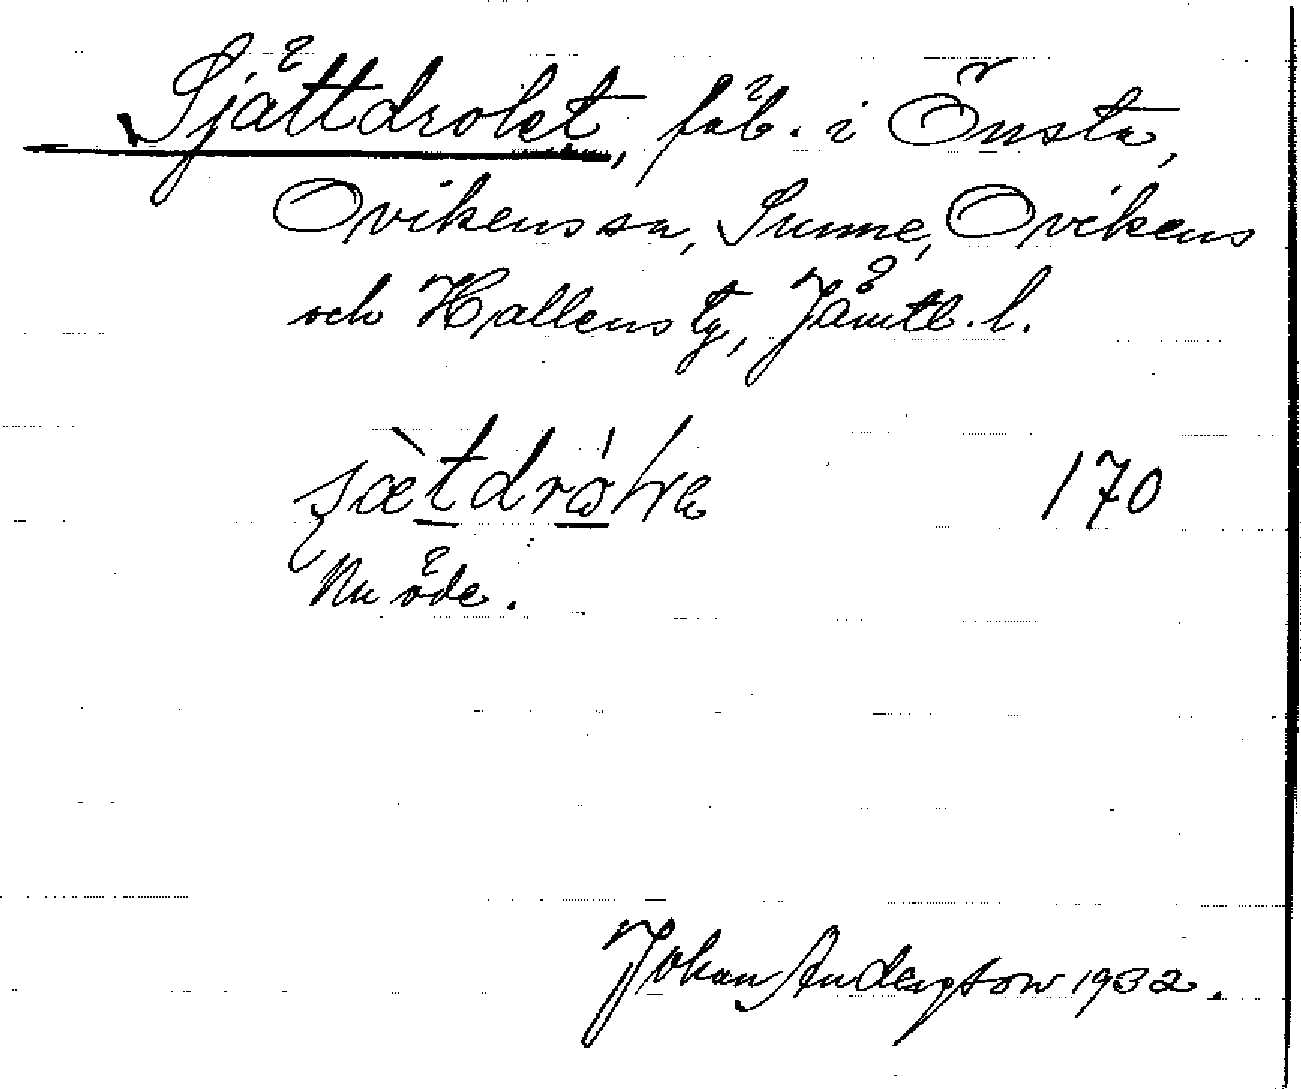 Sjättdroket, fäb. i Önsta,
Ovikens sn, Sunne, Ovikens
och Hallens tg, Jämtl. l.
170
Nu öde.
Johan Anderson 1932.